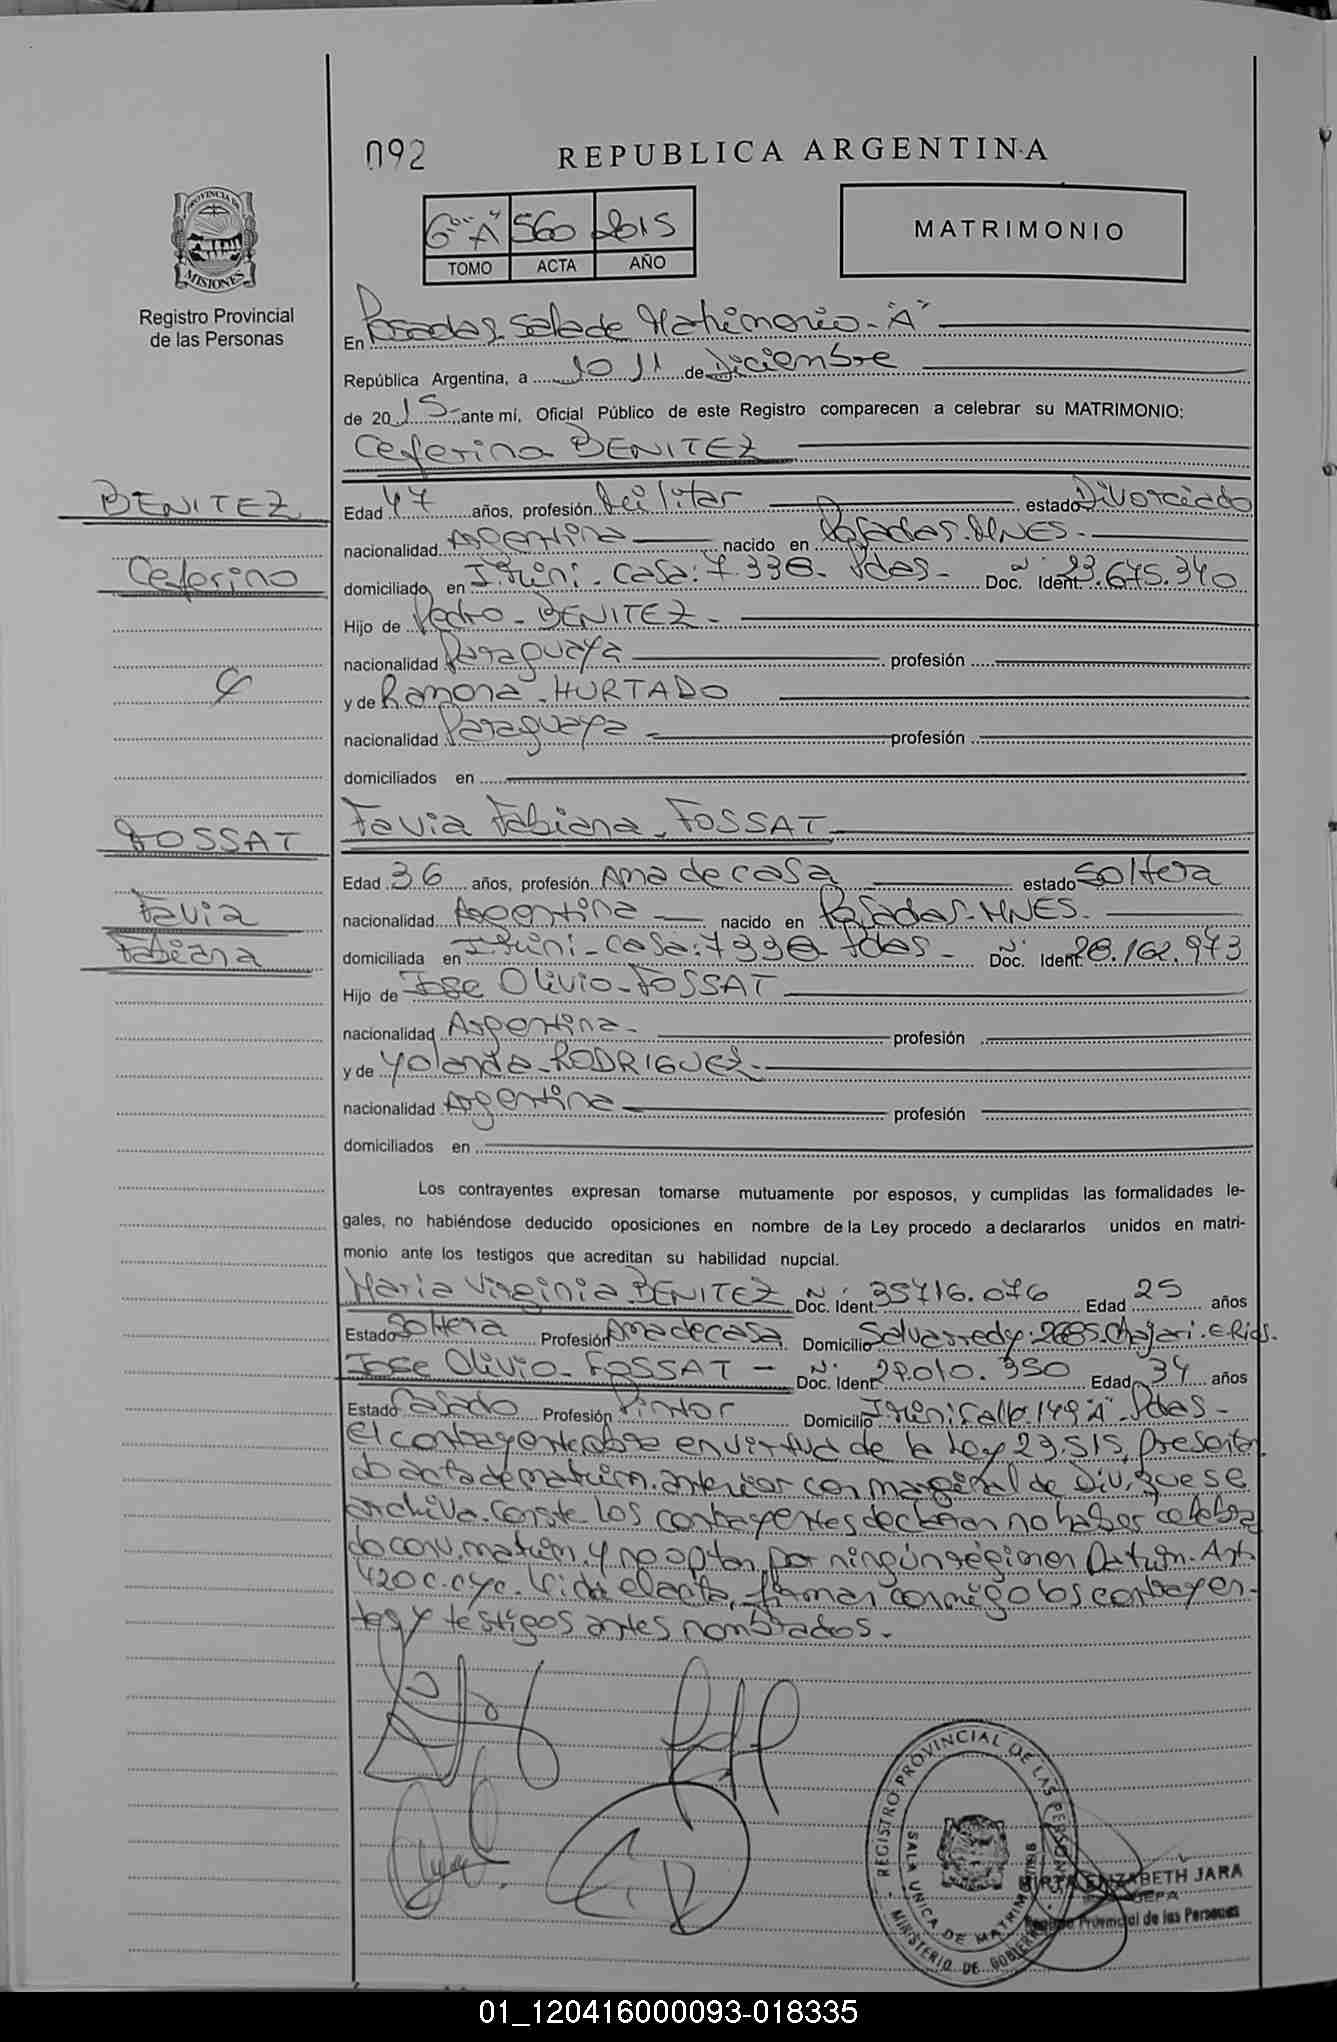 092
REPUBLICA ARGENTINA
6º "A" 560 2015
TOMO ACTA AÑO
MATRIMONIO
PROVINCIA DE
MISIONES
Registro Provincial
de las Personas
En Posadas. Sala de Matrimonio - "A"
República Argentina, a 10 11 de Diciembre
de 2015 ante mí, Oficial Público de este Registro comparecen a celebrar su MATRIMONIO:
Ceferino BENITEZ
BENITEZ
Ceferino
y
Edad 47 años, profesión Militar estado Divorciado
nacionalidad Argentina nacido en Posadas. MNES.
domiciliado en I. Mini. Casa: 7.338. Pdas - Doc. Ident. Nº 23.675.340
Hijo de Pedro - BENITEZ -
nacionalidad Paraguaya profesión
y de Ramona - HURTADO
nacionalidad Paraguaya - profesión
domiciliados en
Favia Fabiana - FOSSAT
FOSSAT
Favia
Fabiana
Edad 36 años, profesión Ama de casa estado Soltera
nacionalidad Argentina nacido en Posadas - MNES.
domiciliada en I. Mini - Casa: 7338 Pdas - Doc. Ident. Nº 28.162.973
Hijo de Jose Olivio - FOSSAT
nacionalidad Argentina - profesión
y de Yolanda - RODRIGUEZ -
nacionalidad Argentina profesión
domiciliados en
Los contrayentes expresan tomarse mutuamente por esposos, y cumplidas las formalidades le-
gales, no habiéndose deducido oposiciones en nombre de la Ley procedo a declararlos unidos en matri-
monio ante los testigos que acreditan su habilidad nupcial.
Maria Virginia BENITEZ Doc. Ident. Nº 35716.076 Edad 25 años
Estado Soltera Profesión Ama de casa Domicilio 2685. Chajari. E. Rios.
Jose Olivio - FOSSAT - Doc. Ident. Nº 29.010.350 Edad 34 años
Estado Casado Profesión Pintor Domicilio I. Mini Calle 149 "A" - Pdas -
El contrayente obra en virtud de la Ley 23.515, presentan
do acta de matrim. anterior con marginal de Div. que se
archiva. Conste. Los contrayentes declaran no haber celebra
do conv. matrim. y no optan por ningún régimen Patrim. Art
420 C.C y C. Leida el acta, firman conmigo los contrayen-
tes y testigos antes nombrados.
REGISTRO PROVINCIAL DE LAS PERSONAS
SALA UNICA DE MATRIMONIOS
MINISTERIO DE GOBIERNO
MIRTA ELIZABETH JARA
JEFA
Registro Provincial de las Personas
01_120416000093-018335